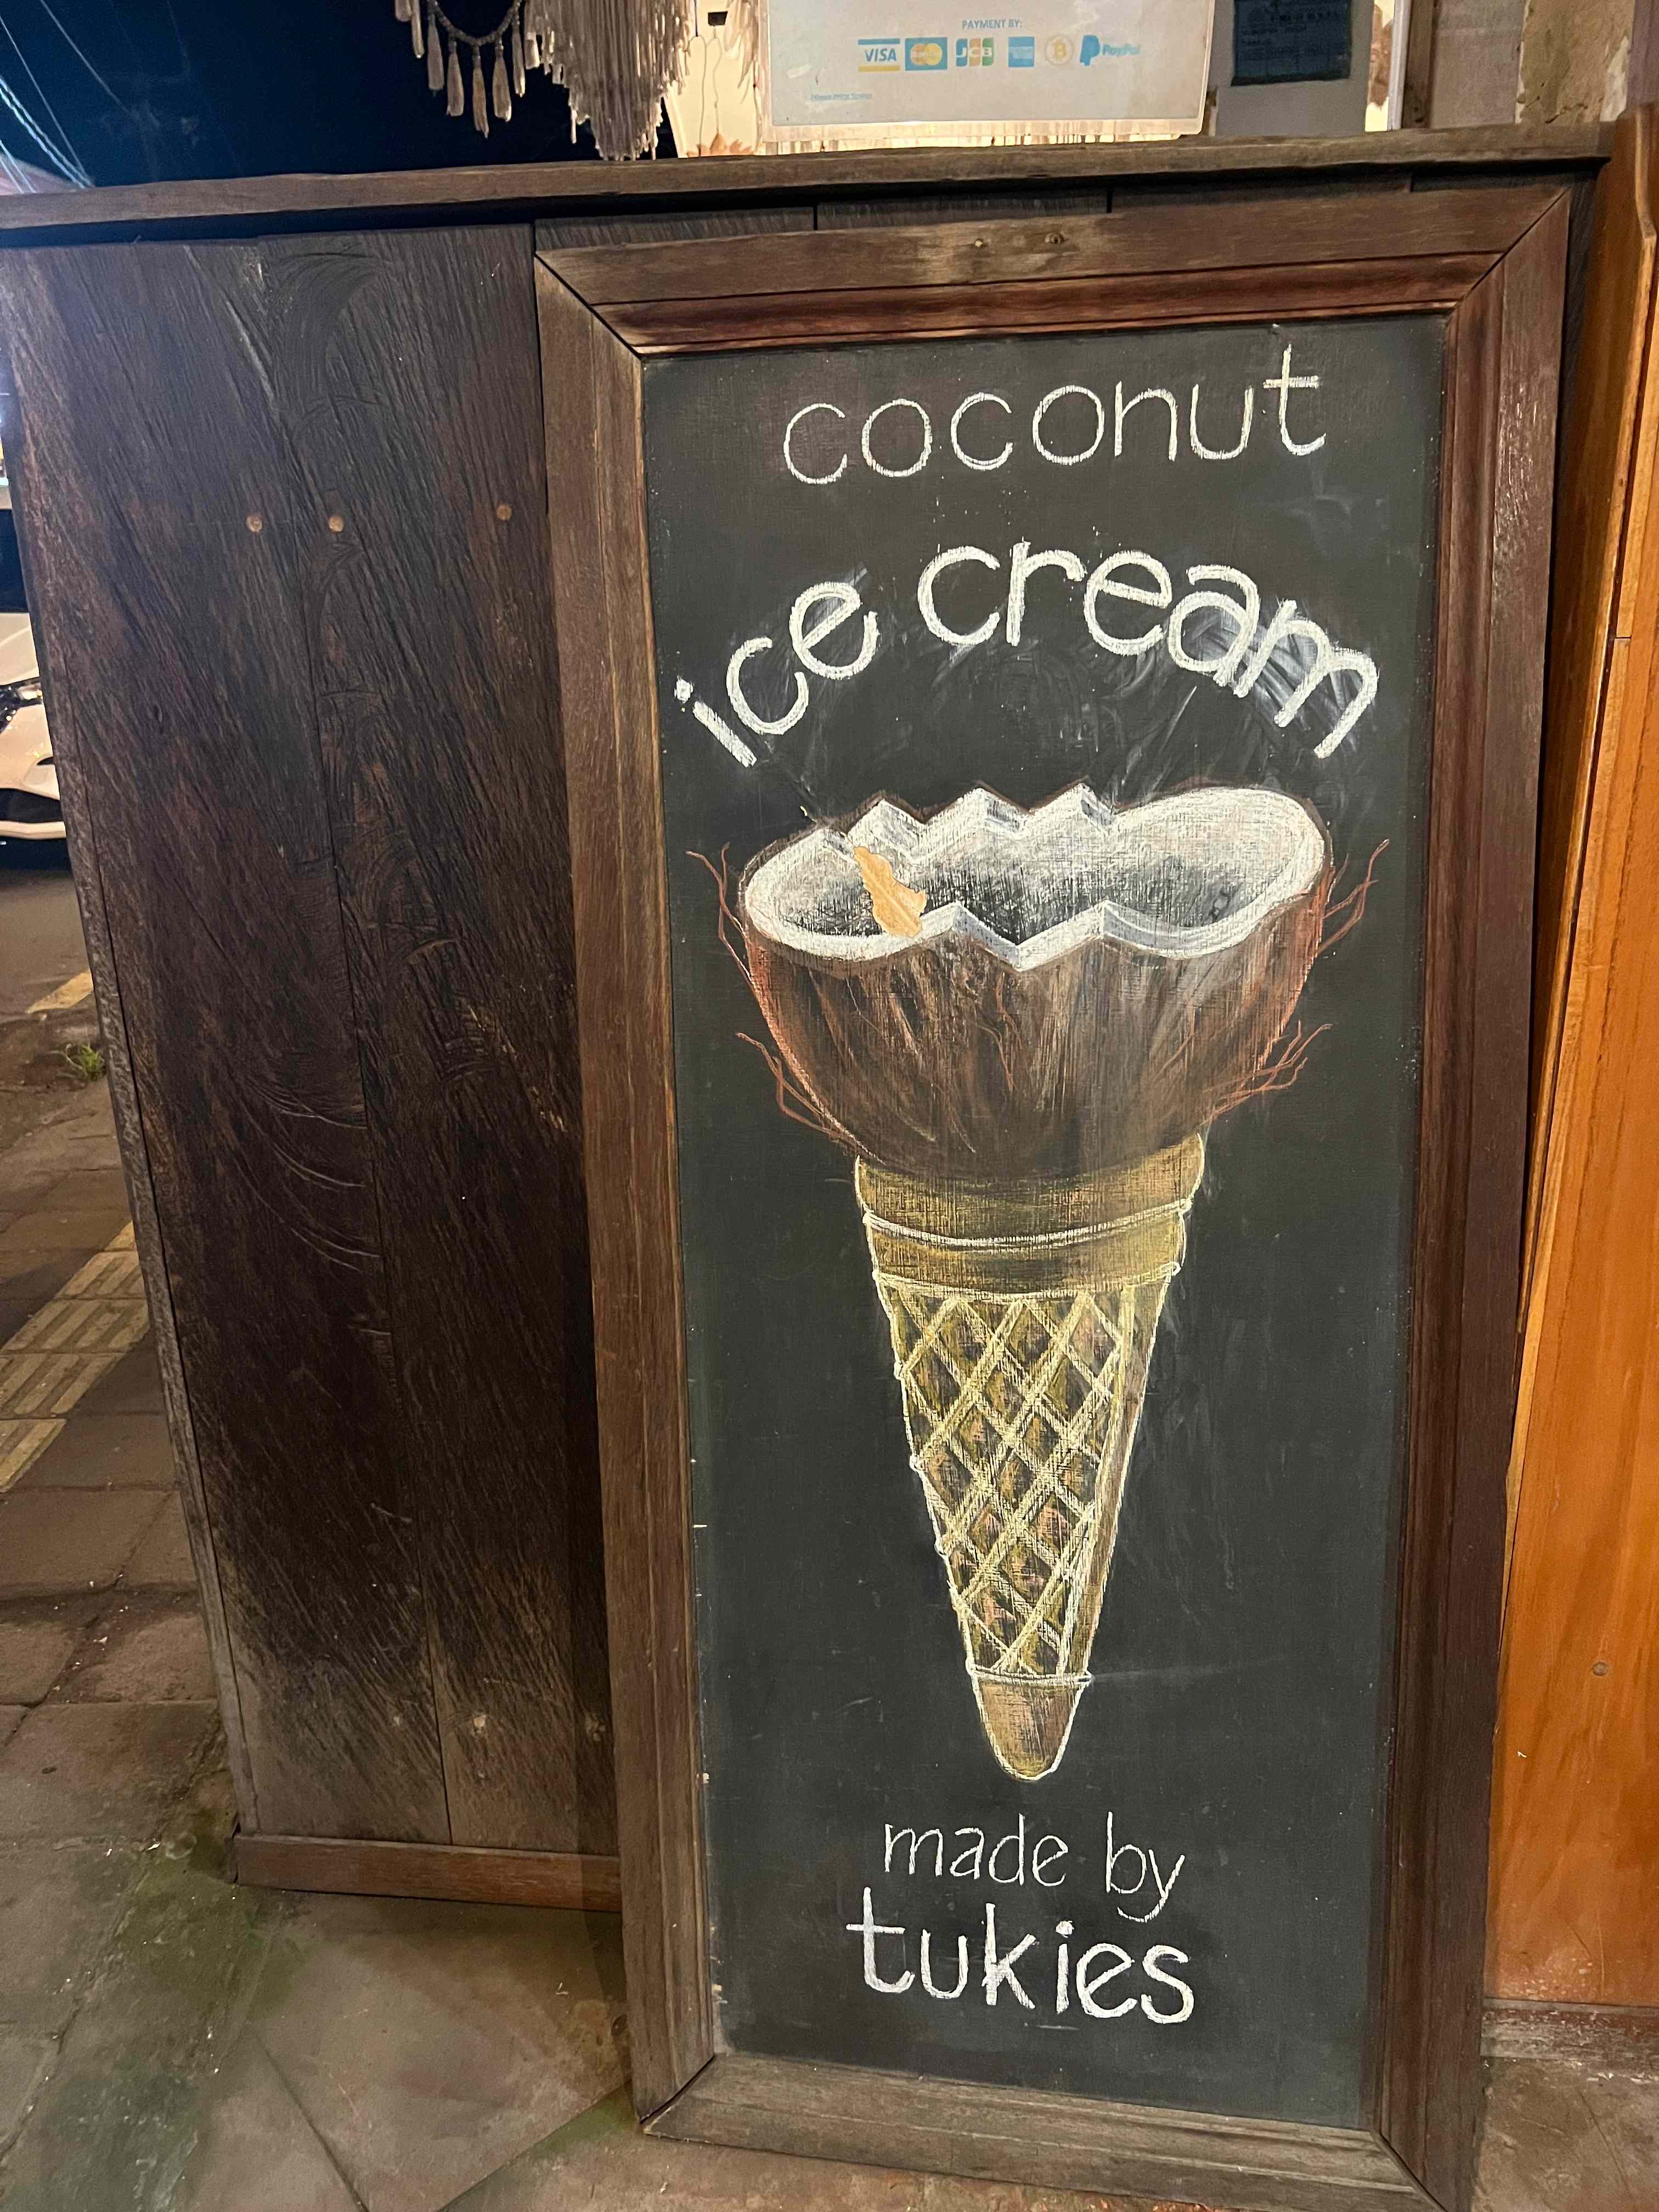 PAYMENT BY:
VISA JCB PayPal
coconut
ice cream
made by
tukies